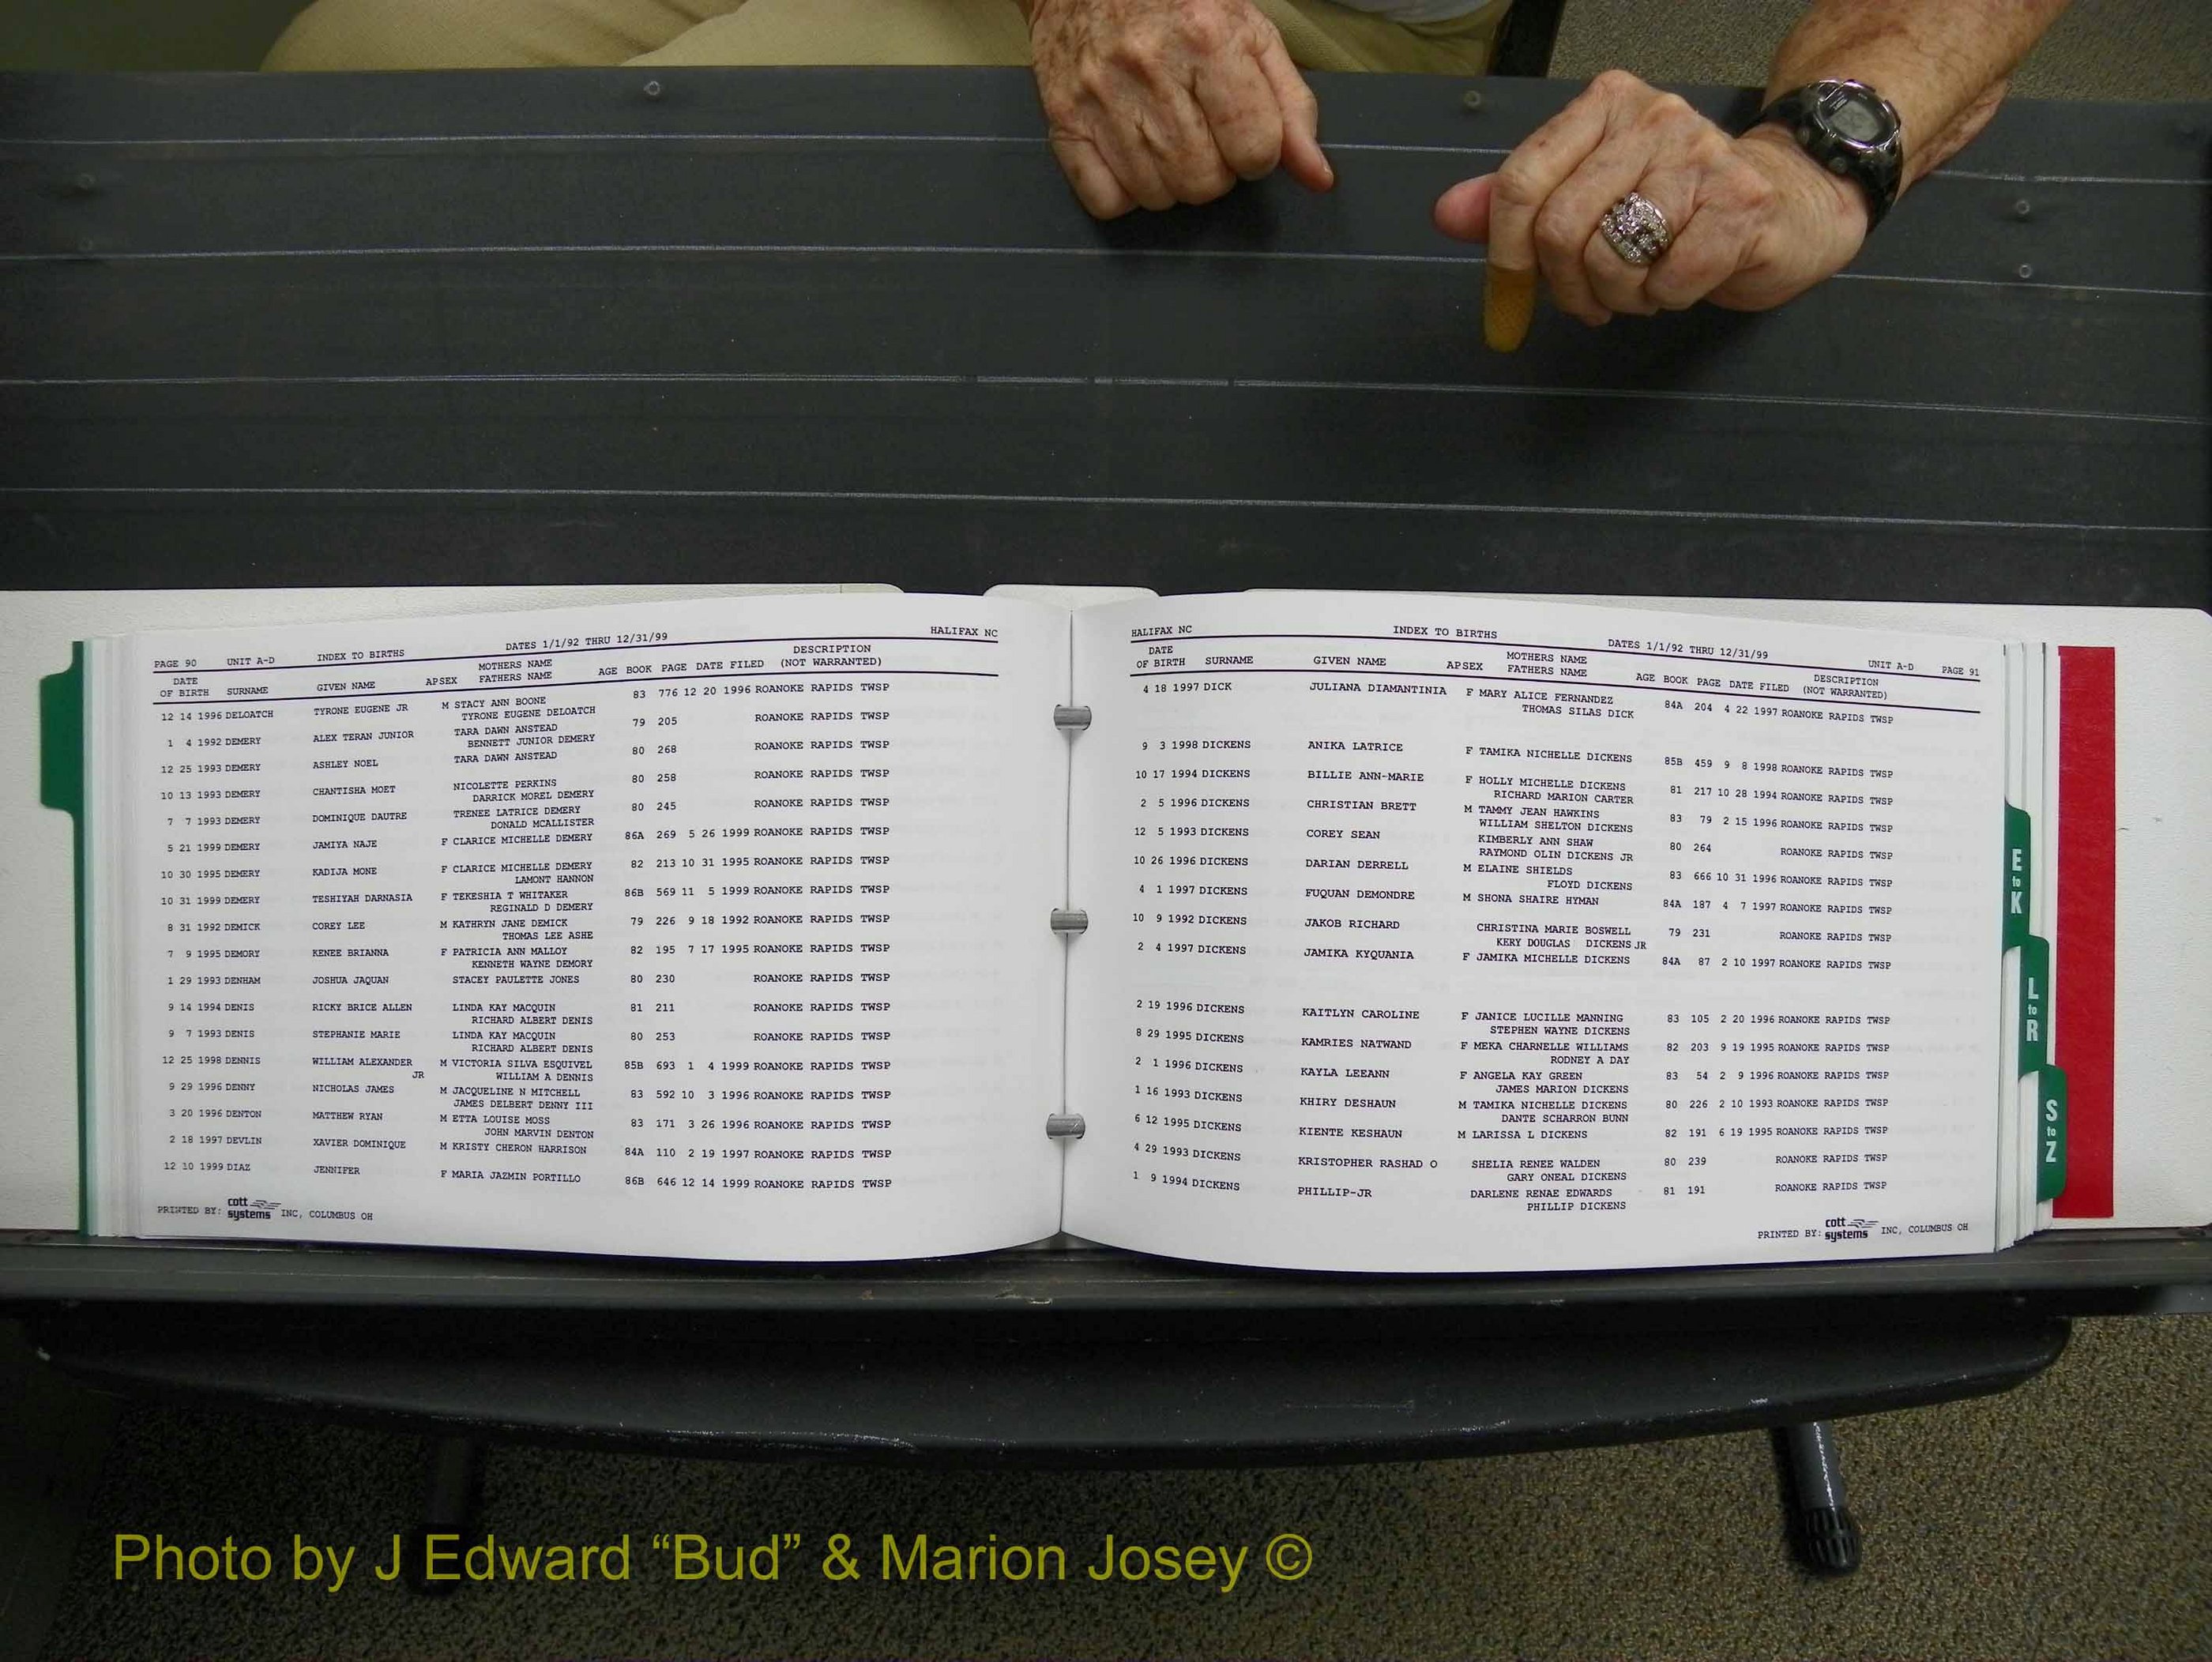 PAGE 90 UNIT A-D INDEX TO BIRTHS DATES 1/1/92 THRU 12/31/99 HALIFAX NC
DATE OF BIRTH SURNAME GIVEN NAME APSEX MOTHERS NAME FATHERS NAME AGE BOOK PAGE DATE FILED DESCRIPTION (NOT WARRANTED)
12 14 1996 DELOATCH TYRONE EUGENE JR M STACY ANN BOONE 83 776 12 20 1996 ROANOKE RAPIDS TWSP
TYRONE EUGENE DELOATCH
1 4 1992 DEMERY ALEX TERAN JUNIOR TARA DAWN ANSTEAD 79 205 ROANOKE RAPIDS TWSP
BENNETT JUNIOR DEMERY
12 25 1993 DEMERY ASHLEY NOEL TARA DAWN ANSTEAD 80 268 ROANOKE RAPIDS TWSP
10 13 1993 DEMERY CHANTISHA MOET NICOLETTE PERKINS 80 258 ROANOKE RAPIDS TWSP
DARRICK MOREL DEMERY
7 7 1993 DEMERY DOMINIQUE DAUTRE TRENEE LATRICE DEMERY 80 245 ROANOKE RAPIDS TWSP
DONALD MCALLISTER
5 21 1999 DEMERY JAMIYA NAJE F CLARICE MICHELLE DEMERY 86A 269 5 26 1999 ROANOKE RAPIDS TWSP
10 30 1995 DEMERY KADIJA MONE F CLARICE MICHELLE DEMERY 82 213 10 31 1995 ROANOKE RAPIDS TWSP
LAMONT HANNON
10 31 1999 DEMERY TESHIYAH DARNASIA F TEKESHIA T WHITAKER 86B 569 11 5 1999 ROANOKE RAPIDS TWSP
REGINALD D DEMERY
8 31 1992 DEMICK COREY LEE M KATHRYN JANE DEMICK 79 226 9 18 1992 ROANOKE RAPIDS TWSP
THOMAS LEE ASHE
7 9 1995 DEMORY RENEE BRIANNA F PATRICIA ANN MALLOY 82 195 7 17 1995 ROANOKE RAPIDS TWSP
KENNETH WAYNE DEMORY
1 29 1993 DENHAM JOSHUA JAQUAN STACEY PAULETTE JONES 80 230 ROANOKE RAPIDS TWSP
9 14 1994 DENIS RICKY BRICE ALLEN LINDA KAY MACQUIN 81 211 ROANOKE RAPIDS TWSP
RICHARD ALBERT DENIS
9 7 1993 DENIS STEPHANIE MARIE LINDA KAY MACQUIN 80 253 ROANOKE RAPIDS TWSP
RICHARD ALBERT DENIS
12 25 1998 DENNIS WILLIAM ALEXANDER M VICTORIA SILVA ESQUIVEL 85B 693 1 4 1999 ROANOKE RAPIDS TWSP
JR WILLIAM A DENNIS
9 29 1996 DENNY NICHOLAS JAMES M JACQUELINE N MITCHELL 83 592 10 3 1996 ROANOKE RAPIDS TWSP
JAMES DELBERT DENNY III
3 20 1996 DENTON MATTHEW RYAN M ETTA LOUISE MOSS 83 171 3 26 1996 ROANOKE RAPIDS TWSP
JOHN MARVIN DENTON
2 18 1997 DEVLIN XAVIER DOMINIQUE M KRISTY CHERON HARRISON 84A 110 2 19 1997 ROANOKE RAPIDS TWSP
12 10 1999 DIAZ JENNIFER F MARIA JAZMIN PORTILLO 86B 646 12 14 1999 ROANOKE RAPIDS TWSP
PRINTED BY: cott systems INC, COLUMBUS OH
HALIFAX NC INDEX TO BIRTHS DATES 1/1/92 THRU 12/31/99 UNIT A-D PAGE 91
DATE OF BIRTH SURNAME GIVEN NAME APSEX MOTHERS NAME FATHERS NAME AGE BOOK PAGE DATE FILED DESCRIPTION (NOT WARRANTED)
4 18 1997 DICK JULIANA DIAMANTINIA F MARY ALICE FERNANDEZ 84A 204 4 22 1997 ROANOKE RAPIDS TWSP
THOMAS SILAS DICK
9 3 1998 DICKENS ANIKA LATRICE F TAMIKA NICHELLE DICKENS 85B 459 9 8 1998 ROANOKE RAPIDS TWSP
10 17 1994 DICKENS BILLIE ANN-MARIE F HOLLY MICHELLE DICKENS 81 217 10 28 1994 ROANOKE RAPIDS TWSP
RICHARD MARION CARTER
2 5 1996 DICKENS CHRISTIAN BRETT M TAMMY JEAN HAWKINS 83 79 2 15 1996 ROANOKE RAPIDS TWSP
WILLIAM SHELTON DICKENS
12 5 1993 DICKENS COREY SEAN KIMBERLY ANN SHAW 80 264 ROANOKE RAPIDS TWSP
RAYMOND OLIN DICKENS JR
10 26 1996 DICKENS DARIAN DERRELL M ELAINE SHIELDS 83 666 10 31 1996 ROANOKE RAPIDS TWSP
FLOYD DICKENS
4 1 1997 DICKENS FUQUAN DEMONDRE M SHONA SHAIRE HYMAN 84A 187 4 7 1997 ROANOKE RAPIDS TWSP
10 9 1992 DICKENS JAKOB RICHARD CHRISTINA MARIE BOSWELL 79 231 ROANOKE RAPIDS TWSP
KERY DOUGLAS DICKENS JR
2 4 1997 DICKENS JAMIKA KYQUANIA F JAMIKA MICHELLE DICKENS 84A 87 2 10 1997 ROANOKE RAPIDS TWSP
2 19 1996 DICKENS KAITLYN CAROLINE F JANICE LUCILLE MANNING 83 105 2 20 1996 ROANOKE RAPIDS TWSP
STEPHEN WAYNE DICKENS
8 29 1995 DICKENS KAMRIES NATWAND F MEKA CHARNELLE WILLIAMS 82 203 9 19 1995 ROANOKE RAPIDS TWSP
RODNEY A DAY
2 1 1996 DICKENS KAYLA LEEANN F ANGELA KAY GREEN 83 54 2 9 1996 ROANOKE RAPIDS TWSP
JAMES MARION DICKENS
1 16 1993 DICKENS KHIRY DESHAUN M TAMIKA NICHELLE DICKENS 80 226 2 10 1993 ROANOKE RAPIDS TWSP
DANTE SCHARRON BUNN
6 12 1995 DICKENS KIENTE KESHAUN M LARISSA L DICKENS 82 191 6 19 1995 ROANOKE RAPIDS TWSP
4 29 1993 DICKENS KRISTOPHER RASHAD O SHELIA RENEE WALDEN 80 239 ROANOKE RAPIDS TWSP
GARY ONEAL DICKENS
1 9 1994 DICKENS PHILLIP-JR DARLENE RENAE EDWARDS 81 191 ROANOKE RAPIDS TWSP
PHILLIP DICKENS
PRINTED BY: cott systems INC, COLUMBUS OH
E to K
L to R
S to Z
Photo by J Edward “Bud” & Marion Josey ©